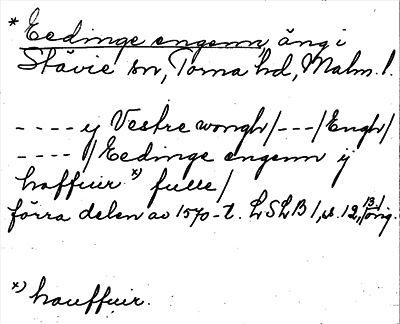 * Eedinge engenn, äng i
Stävie sn, Torna hd, Malm. l.
---- ij Vestre wongh/---/Engh/
----// Eedinge engenn ij
haffuir *) fulle/
förra delen av 1570-t. LSLB 1, s. 12, 13/ orig.
*) hauffuir.